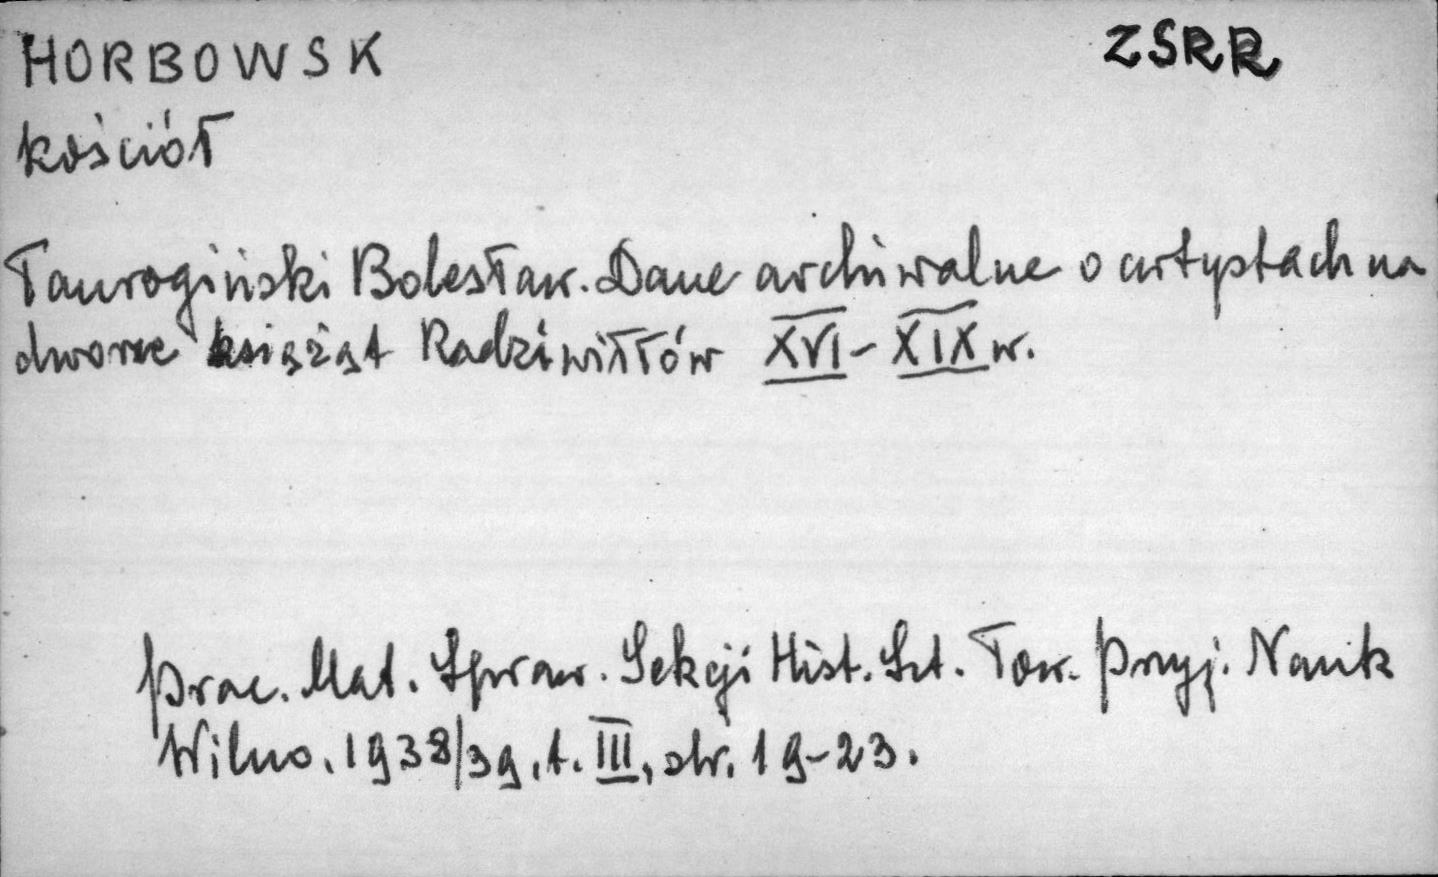 HORBOWSK ZSRR
kościół
Taurogiński Bolesław. Dane archiwalne o artystach na
dworze książąt Radziwiłłów XVI-XIX w.
Prac. Mat. Spraw. Sekcji Hist. Szt. Tow. Przyj. Nauk
Wilno. 1938/39, t. III, str. 19-23.